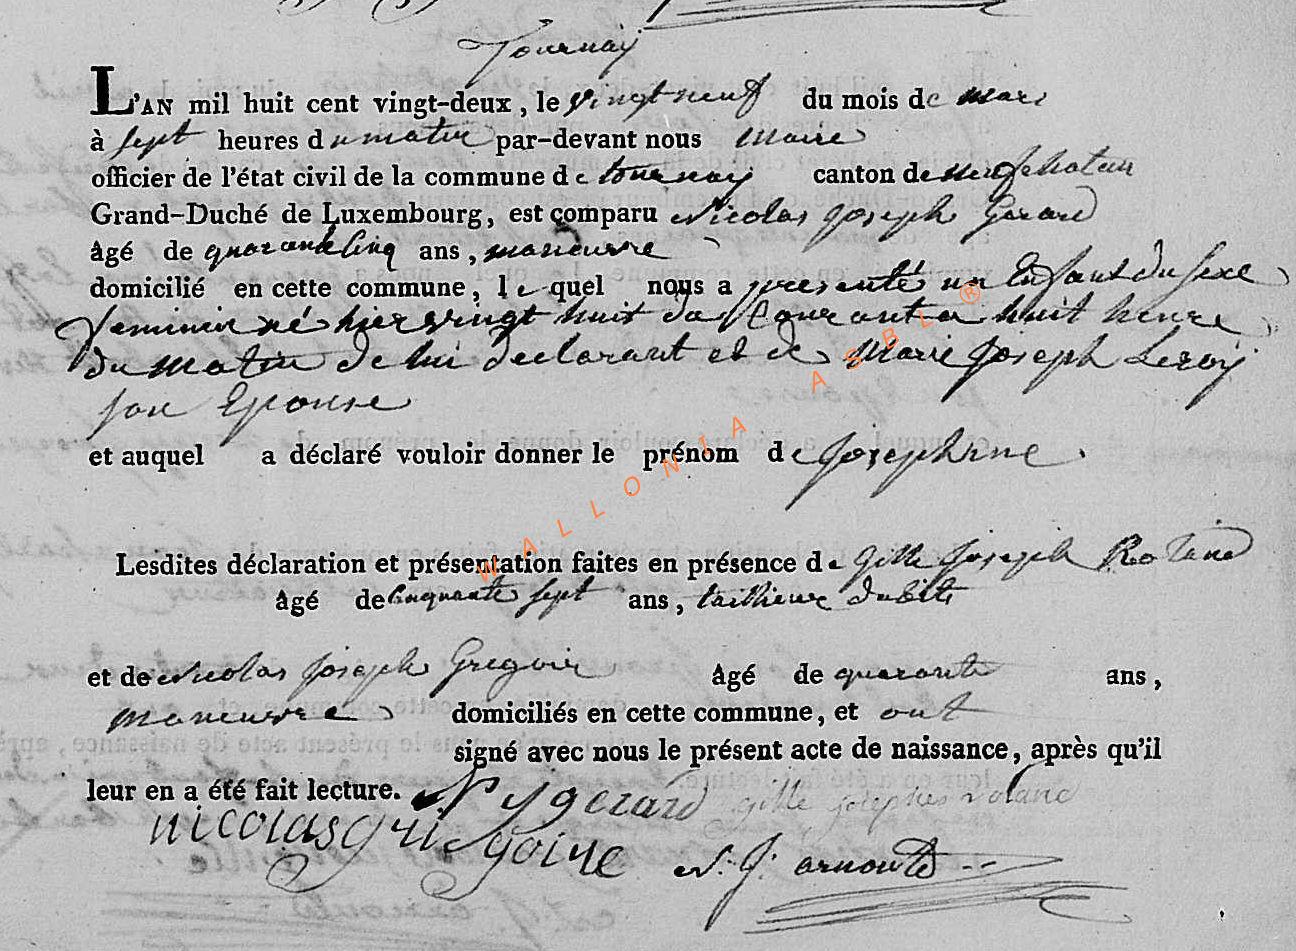 Tournay
L'AN mil huit cent vingt-deux, le vingt neuf du mois de mars
à sept heures du matin par-devant nous Maire
officier de l'état civil de la commune de tournay canton de neufchateau
Grand-Duché de Luxembourg, est comparu Nicolas joseph Gerard
âgé de quarante cinq ans, maneuvre
domicilié en cette commune, le quel nous a presenté un Enfant du sexe
feminin né hier vingt huit du Courant a huit heure
du matin de lui declarant et de Marie joseph Leroy
son Epouse
et auquel a déclaré vouloir donner le prénom de josephine.
Lesdites déclaration et présentation faites en présence de gille joseph Roland
âgé de Cinquante sept ans, taillieur dubits
et de nicolas joseph Gregoire âgé de quarante ans,
maneuvre domiciliés en cette commune, et ont
signé avec nous le présent acte de naissance, après qu'il
leur en a été fait lecture. N j gerard gille josephes roland
nicolas grigoire N. J. arnould
WALLONIA ASBL ®